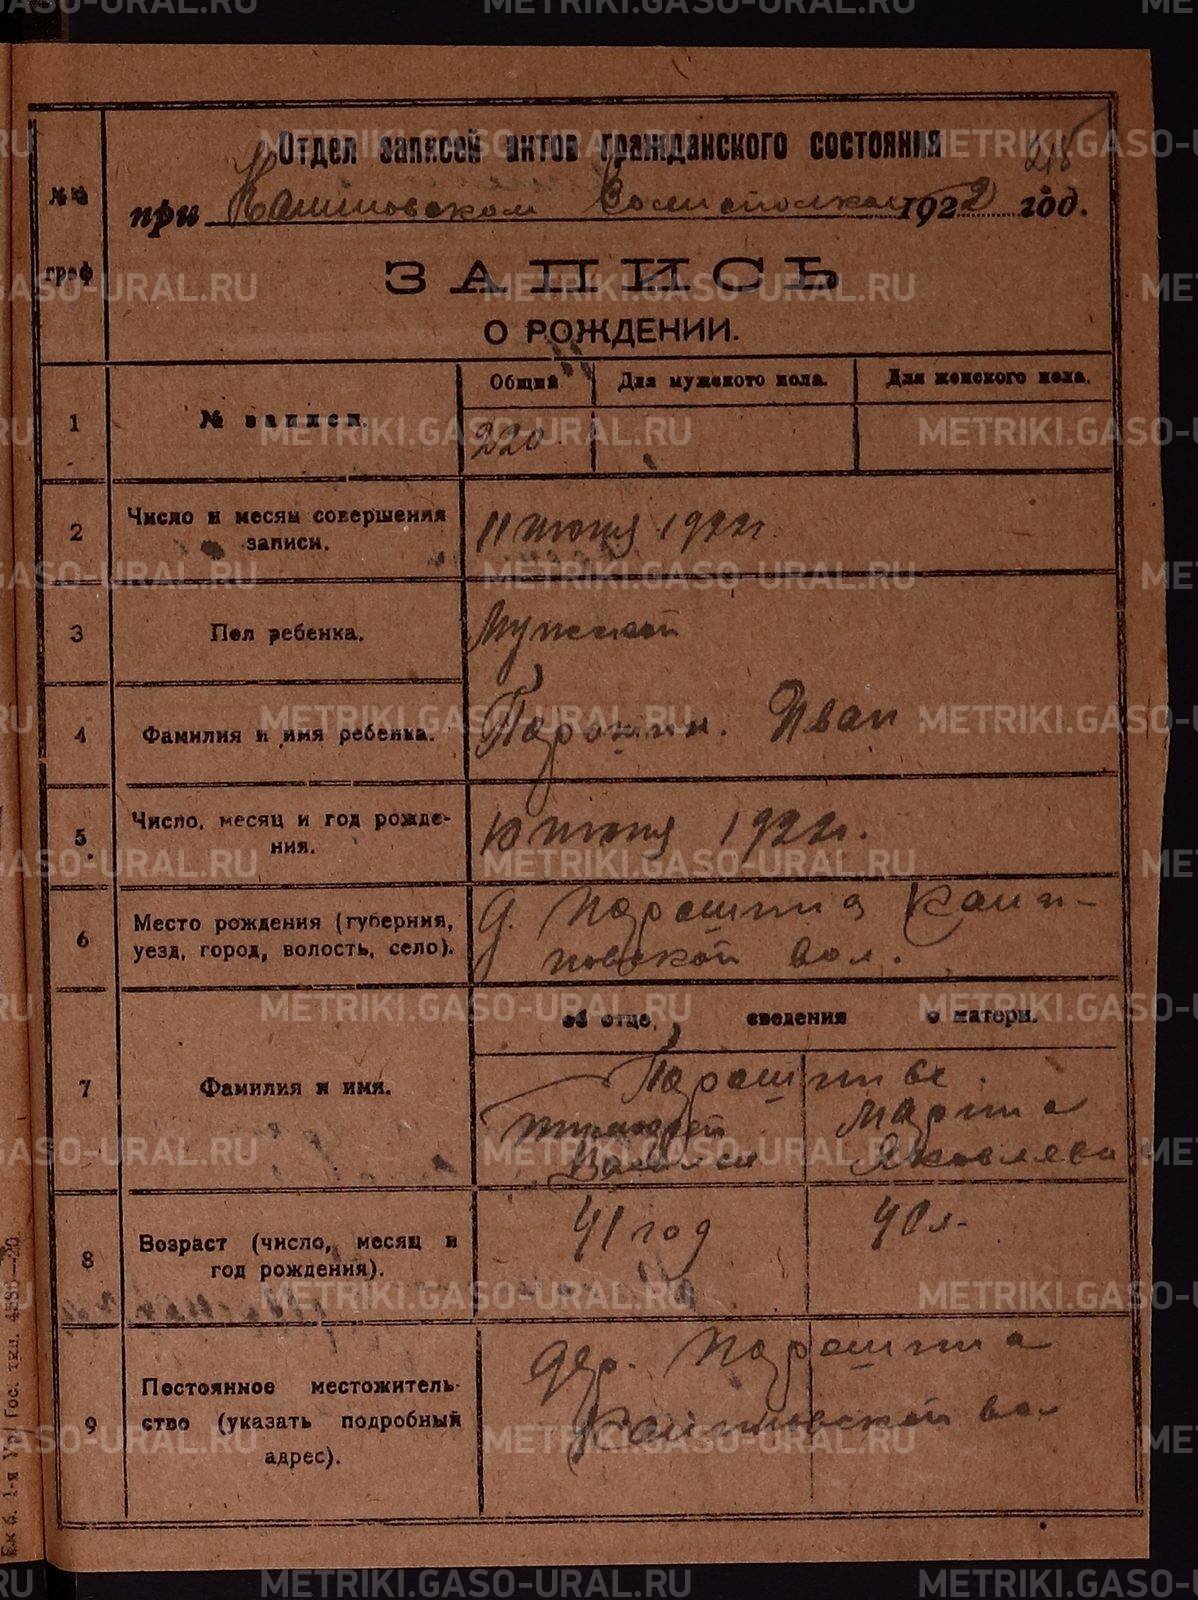 Отдел записей актов гражданского состояния
218
при Волисполкоме 1922 год.
№№ граф
ЗАПИСЬ
О РОЖДЕНИИ.
Общий Для мужского пола. Для женского пола.
1 № записи. 220
2 Число и месяц совершения записи. 11 июня 1922 г.
3 Пол ребенка. Мужской
4 Фамилия и имя ребенка. Парошин. Иван
5 Число, месяц и год рожде-
ния. 10 июня 1922 г.
6 Место рождения (губерния,
уезд, город, волость, село). д. Парошина
вол.
об отце, сведения о матери.
7 Фамилия и имя. Парошины.
Тимофей Марина
Васильев Яковлева
8 Возраст (число, месяц и
год рождения). 41 год 40 л.
9 Постоянное местожитель-
ство (указать подробный
адрес). дер. Парошина
вол
METRIKI.GASO-URAL.RU